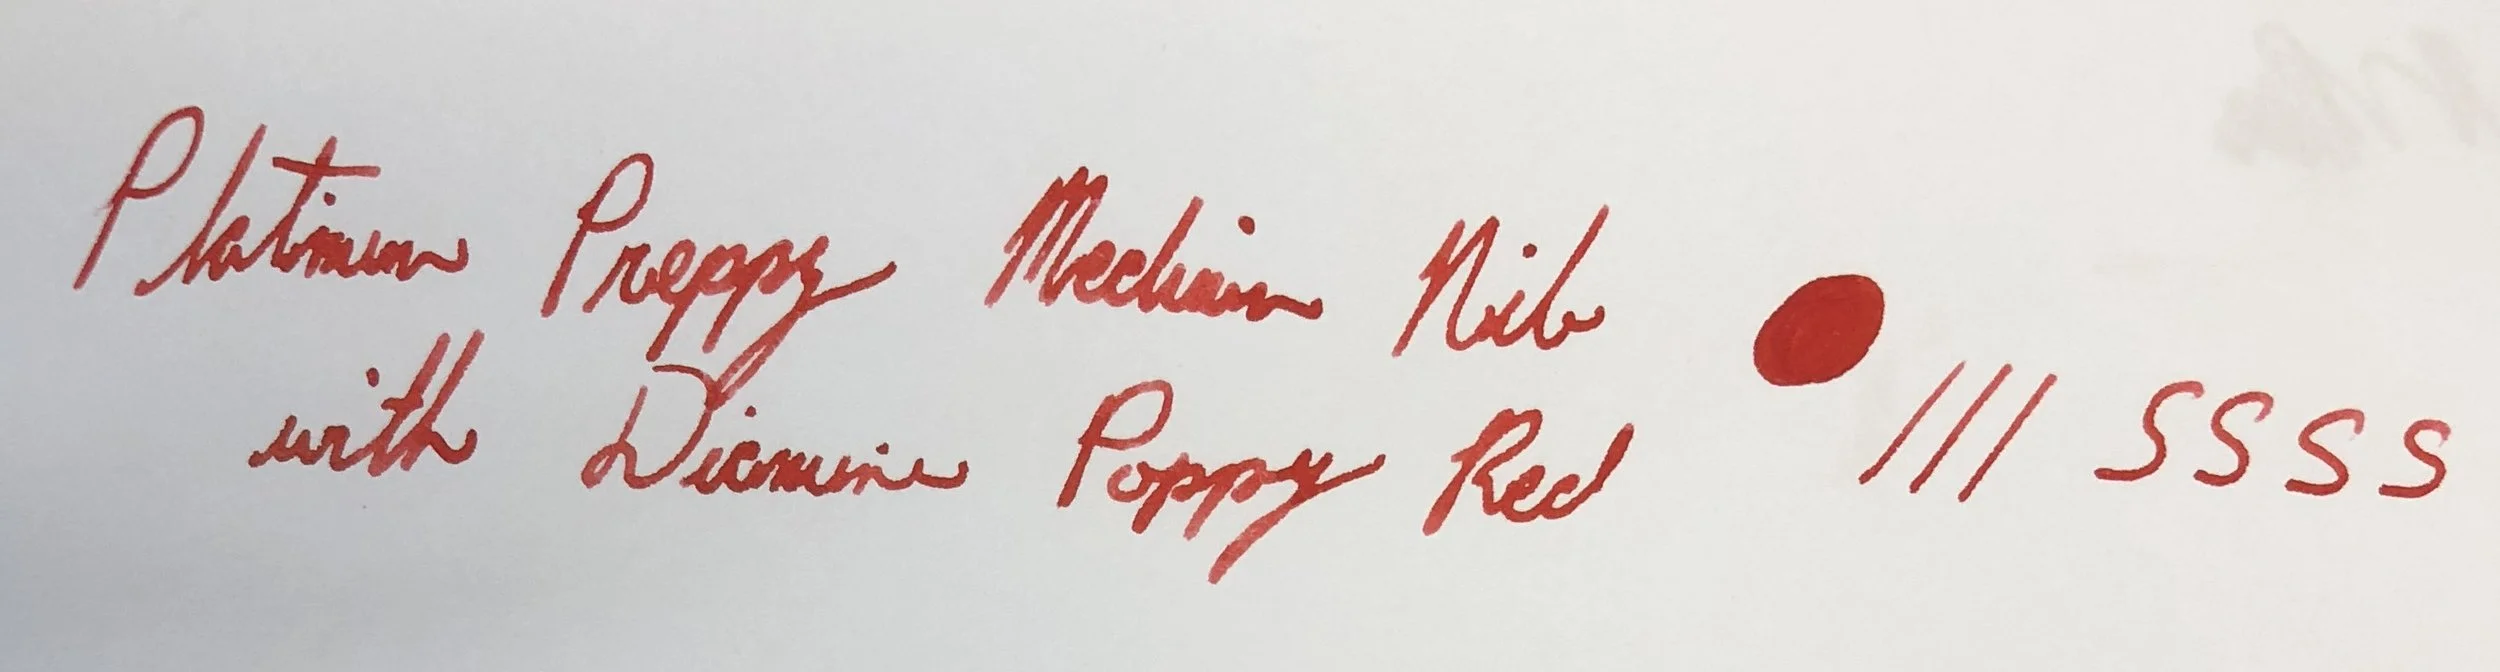 Platinum Preppy Medium Nib
with Diamine Poppy Red /// SSSS